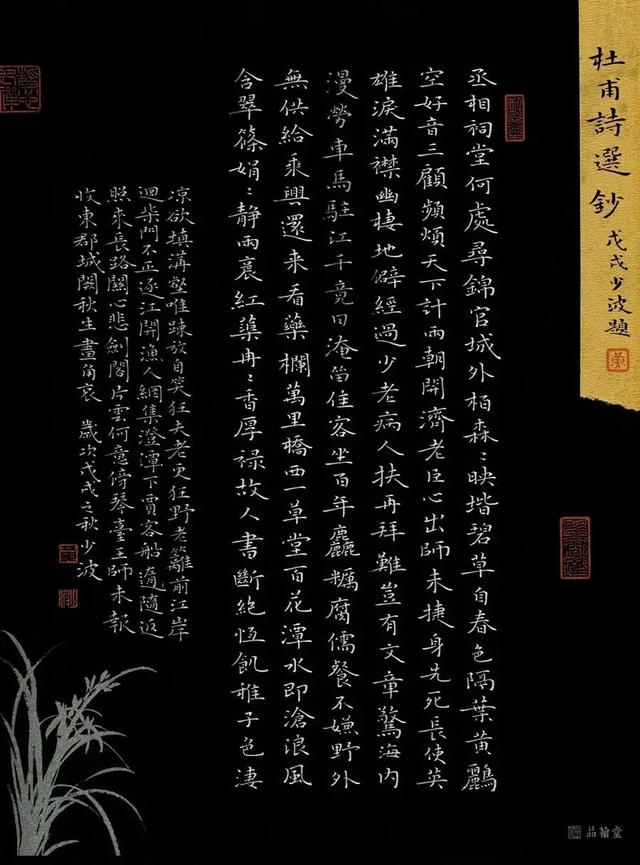 杜甫詩選鈔 戊戌少波題
丞相祠堂何處尋錦官城外柏森〻映堦碧草自春色隔葉黃鸝
空好音三顧頻煩天下計兩朝開濟老臣心出師未捷身先死長使英
雄淚滿襟幽棲地僻經過少老病人扶再拜難豈有文章驚海內
漫勞車馬駐江干竟日淹留佳客坐百年麤糲腐儒餐不嫌野外
無供給乘興還来看藥欄萬里橋西一草堂百花潭水即滄浪風
含翠篠娟〻靜雨裛紅蕖冉〻香厚祿故人書斷絕恆飢稚子色淒
涼欲填溝壑唯踈放自笑狂夫老更狂野老籬前江岸
迴柴門不正逐江開漁人網集澄潭下賈客船隨返
照来長路關心悲劍閣片雲何意傍琴臺王師未報
收東郡城闕秋生畫角哀 歲次戊戌之秋少波
品翰堂